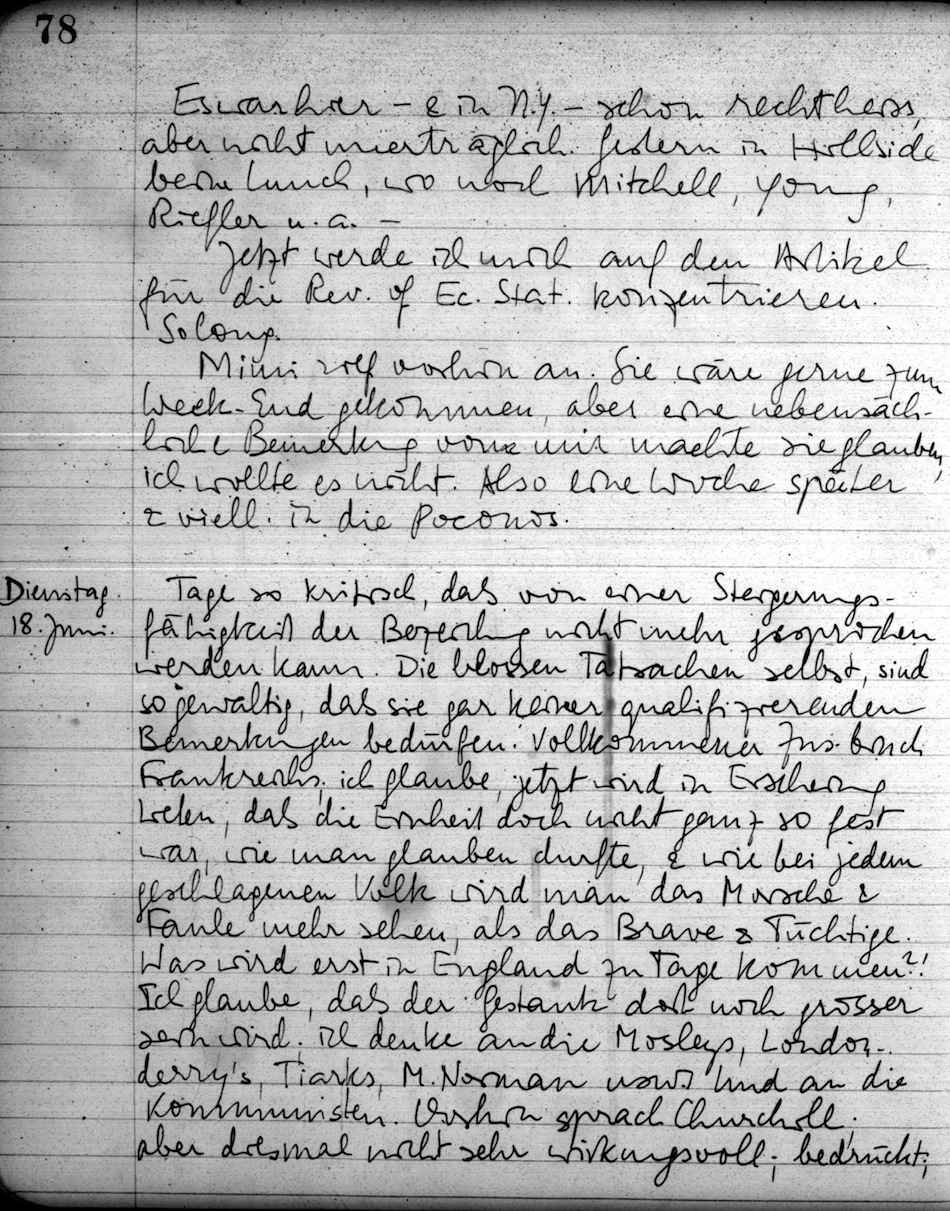 78
Es war hier – & in N.Y. – schon recht heiss,
aber nicht unerträglich. Gestern in Hillside
beim Lunch, wo noch Mitchell, Young,
Riefler u. a. –
Jetzt werde ich mich auf den Artikel
für die Rev. of Ec. Stat. konzentrieren.
So long.
Mimi rief vorhin an. Sie wäre gerne zum
Week-End gekommen, aber eine nebensäch-
liche Bemerkung von mir machte sie glauben,
ich wollte es nicht. Also eine Woche später
& viell. in die Poconos.
Dienstag
18. Juni.
Tage so kritisch, dass von einer Steigerungs-
fähigkeit der Bezeichng nicht mehr gesprochen
werden kann. Die blossen Tatsachen selbst, sind
so gewaltig, dass sie gar keiner qualifizierenden
Bemerkungen bedürfen. Vollkommener Zus.bruch
Frankreichs; ich glaube, jetzt wird in Erscheing
treten, dass die Einheit doch nicht ganz so fest
war, wie man glauben durfte, & wie bei jedem
geschlagenen Volk wird man das Morsche &
Faule mehr sehen, als das Brave & Tüchtige.
Was wird erst in England zu Tage kommen?!
Ich glaube, dass der Gestank dort noch grösser
sein wird. ich denke an die Mosleys, London-
derry's, Tiarks, M. Norman usw. Und an die
Kommunisten. Vorhin sprach Churchill;
aber diesmal nicht sehr wirkungsvoll; bedrückt;